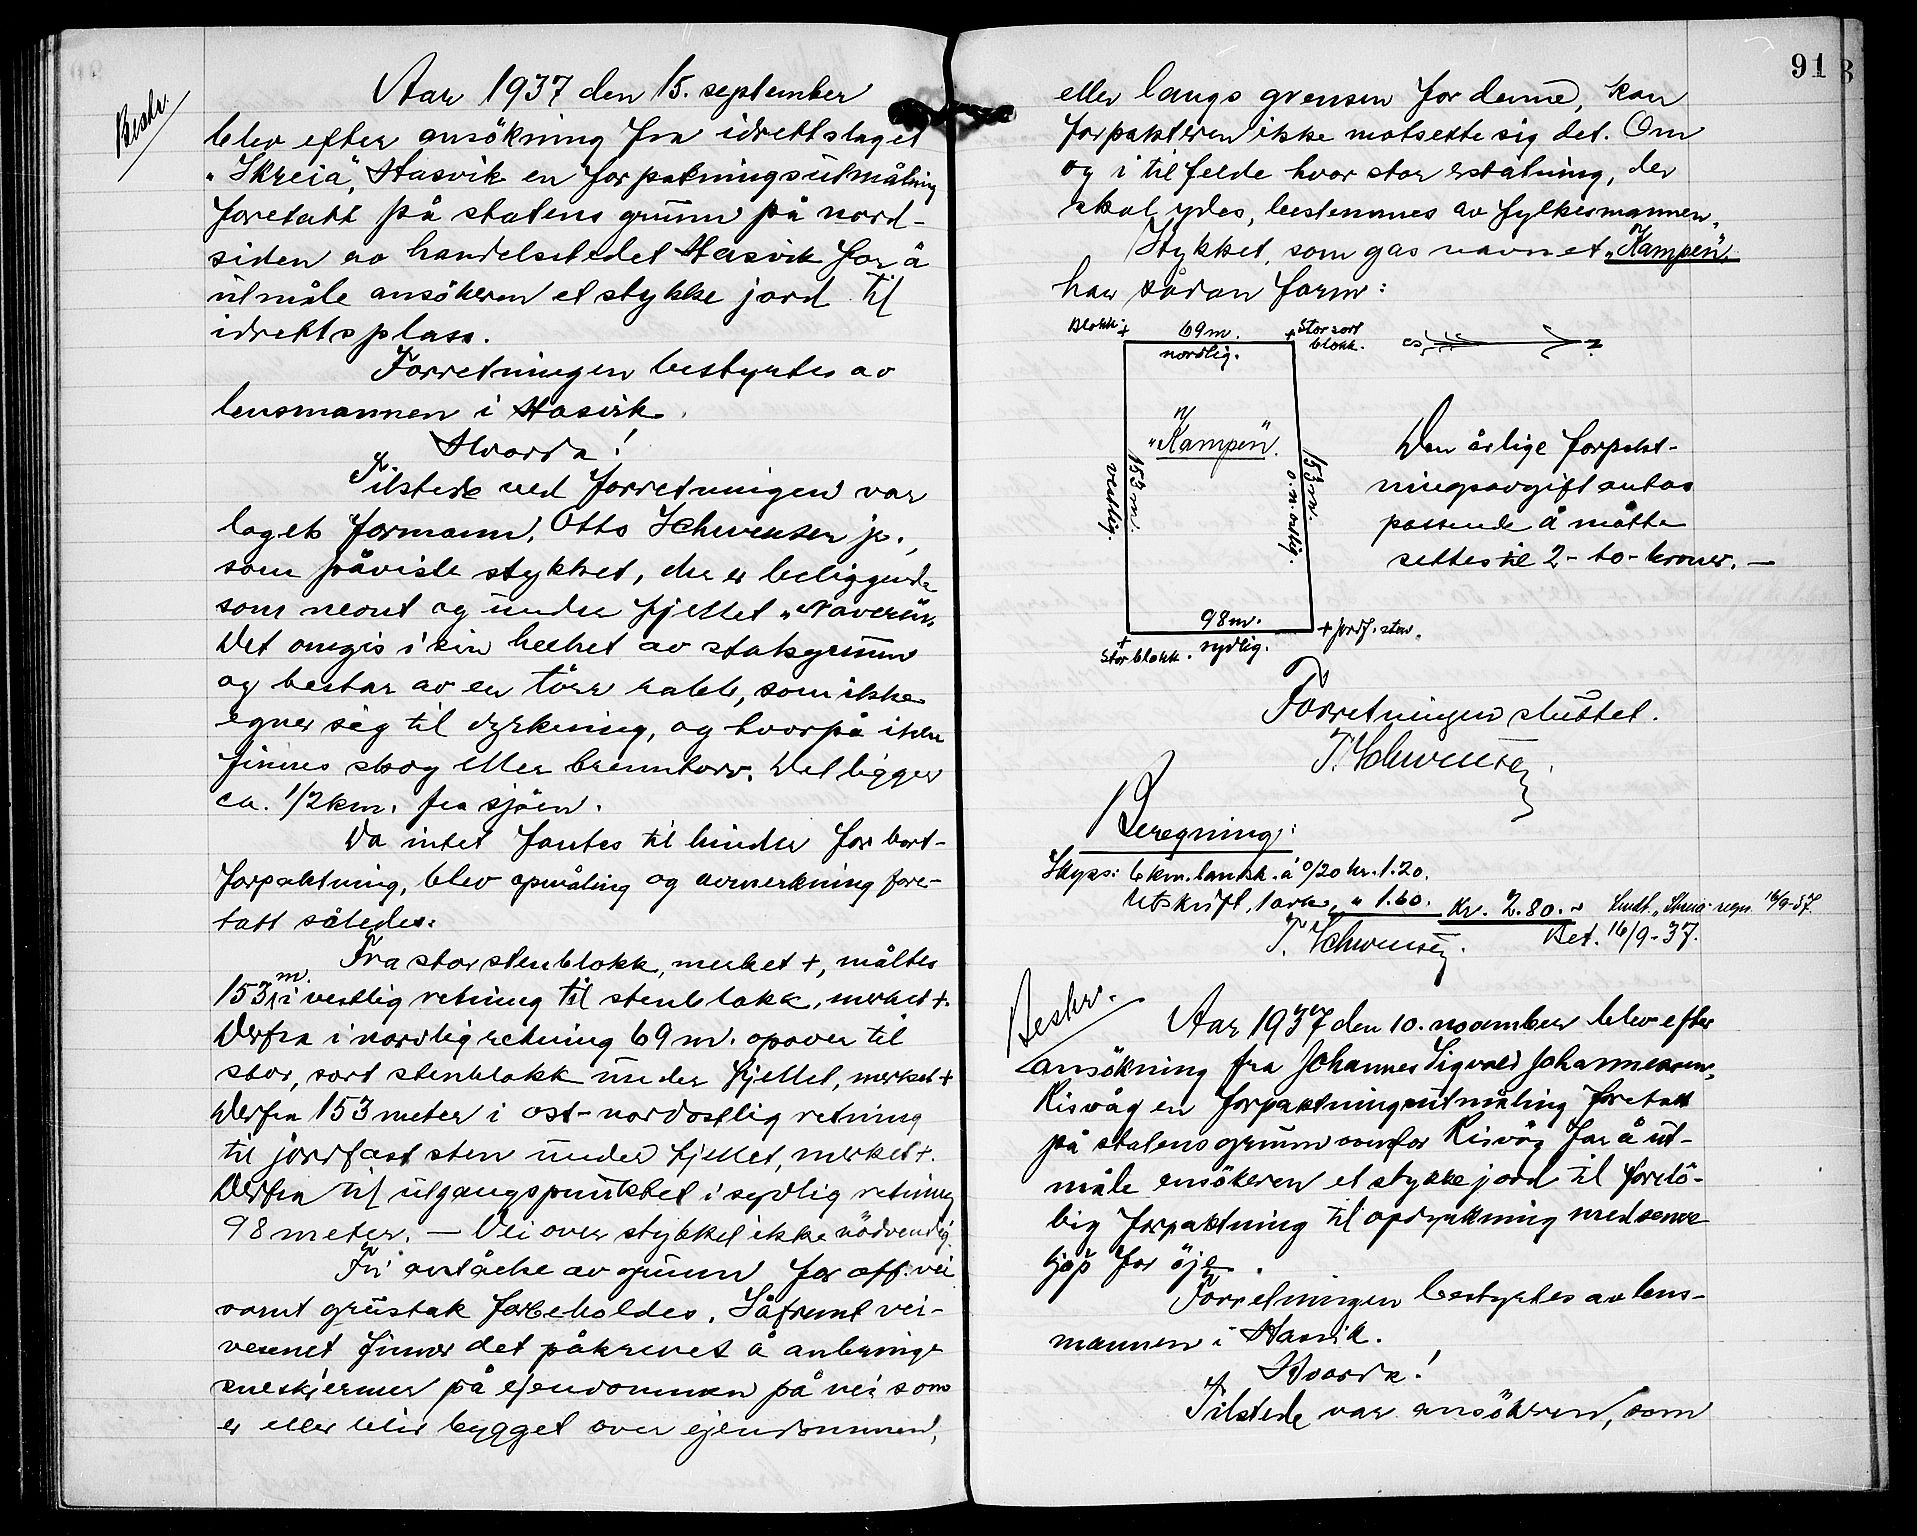 Beskr.
Aar 1937 den 15. september
blev efter ansökning fra idrettslaget
„Skreia", Hasvik en forpaktningsutmåling
foretatt på statens grunn på nord-
siden av handelsstedet Hasvik for å
utmåle ansökeren et stykke jord til
idrettsplass.
Forretningen bestyrtes av
lensmannen i Hasvik.
Hvorda!
Tilstede ved forretningen var
lagets formann, Otto Schwensen jr.,
som påviste stykket, der er beliggende
som nevnt og under fjellet
Det omgis i sin helhet av statsgrunn
og bestar av en törr rabb, som ikke
egner sig til dyrkning, og hvorpå ikke
finnes skog eller brenntorv. Det ligger
ca. 1/2 km. fra sjöen.
Da intet fantes til hinder for bort-
forpaktning, blev opmåling og avmerkning fore-
tatt således:
Fra stor stenblokk, merket +, måltes
153 m i vestlig retning til stenblokk, merket +.
Derfra i nordlig retning 69 m. opover til
stor, sort stenblokk under fjellet, merket +
Derfra 153 meter i ost-nordostlig retning
til jordfast sten under fjellet, merket +.
Derfra til utgangspunktet i sydlig retning
98 meter. — Vei over stykket ikke nödvendig.
Fri avståelse av grunn for off. vei
samt grustak forbeholdes. Såfremt vei-
vesenet finner det påkrevet å anbringe
sneskjermer på ejendommen på vei som
er eller blir bygget over ejendommen,
91
eller langs grensen for denne, kan
forpakteren ikke motsette sig det. Om
og i tilfelde hvor stor erstatning, der
skal ydes, bestemmes av fylkesmannen.
Stykket, som gas navnet „Kampen",
har sådan form:
Blokk + 69 m. + Stor sort
nordlig. blokk.
S N
„Kampen".
153 m. vestlig.
153 m. o.n.ostlig.
Den årlige forpakt-
ningsavgift antas
passende å måtte
settes til 2 - to - kroner. —
98 m.
+ jordf. sten.
+ Stor blokk. sydlig.
Forretningen sluttet.
T. Schwensen.
Beregning:
Skyss: 6 km. landsk. á 0/20 kr. 1.20.
Utskrift, 1 ark, „ 1.60. Kr. 2.80. Sendt „Skreia" regn. 16/9-37.
T. Schwensen. Bet. 16/9-37.
Beskr.
Aar 1937 den 10. november blev efter
ansökning fra Johannes Sigvald Johannessen,
Risvåg en forpaktningsutmåling foretatt
på statens grunn ovenfor Risvåg for å ut-
måle ansökeren et stykke jord til forelö-
big forpaktning til opdyrkning med senere
kjöp for öje.
Forretningen bestyrtes av lens-
mannen i Hasvik.
Hvorda!
Tilstede var ansökeren, som